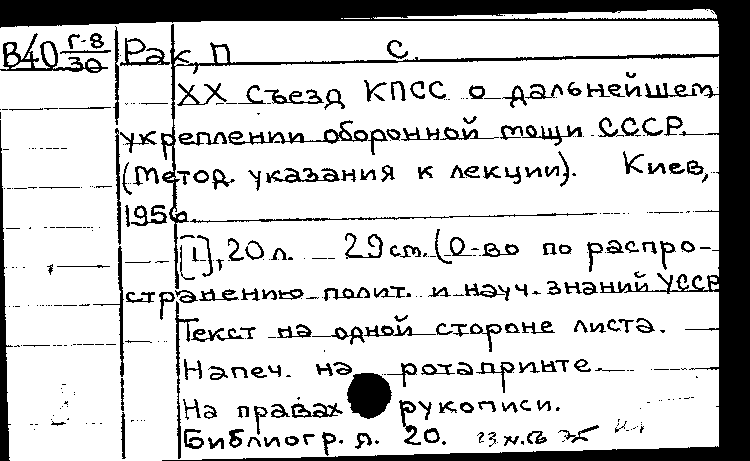 В40 Г-8/30 Рак, П С.
XX съезд КПСС о дальнейшем
укреплении оборонной мощи СССР.
(Метод. указания к лекции). Киев,
1956.
[1], 20 л. 29 см. (О-во по распро-
странению полит. и науч. знаний УССР
Текст на одной стороне листа.
Напеч. на ротапринте.
На правах рукописи.
Библиогр. л. 20.